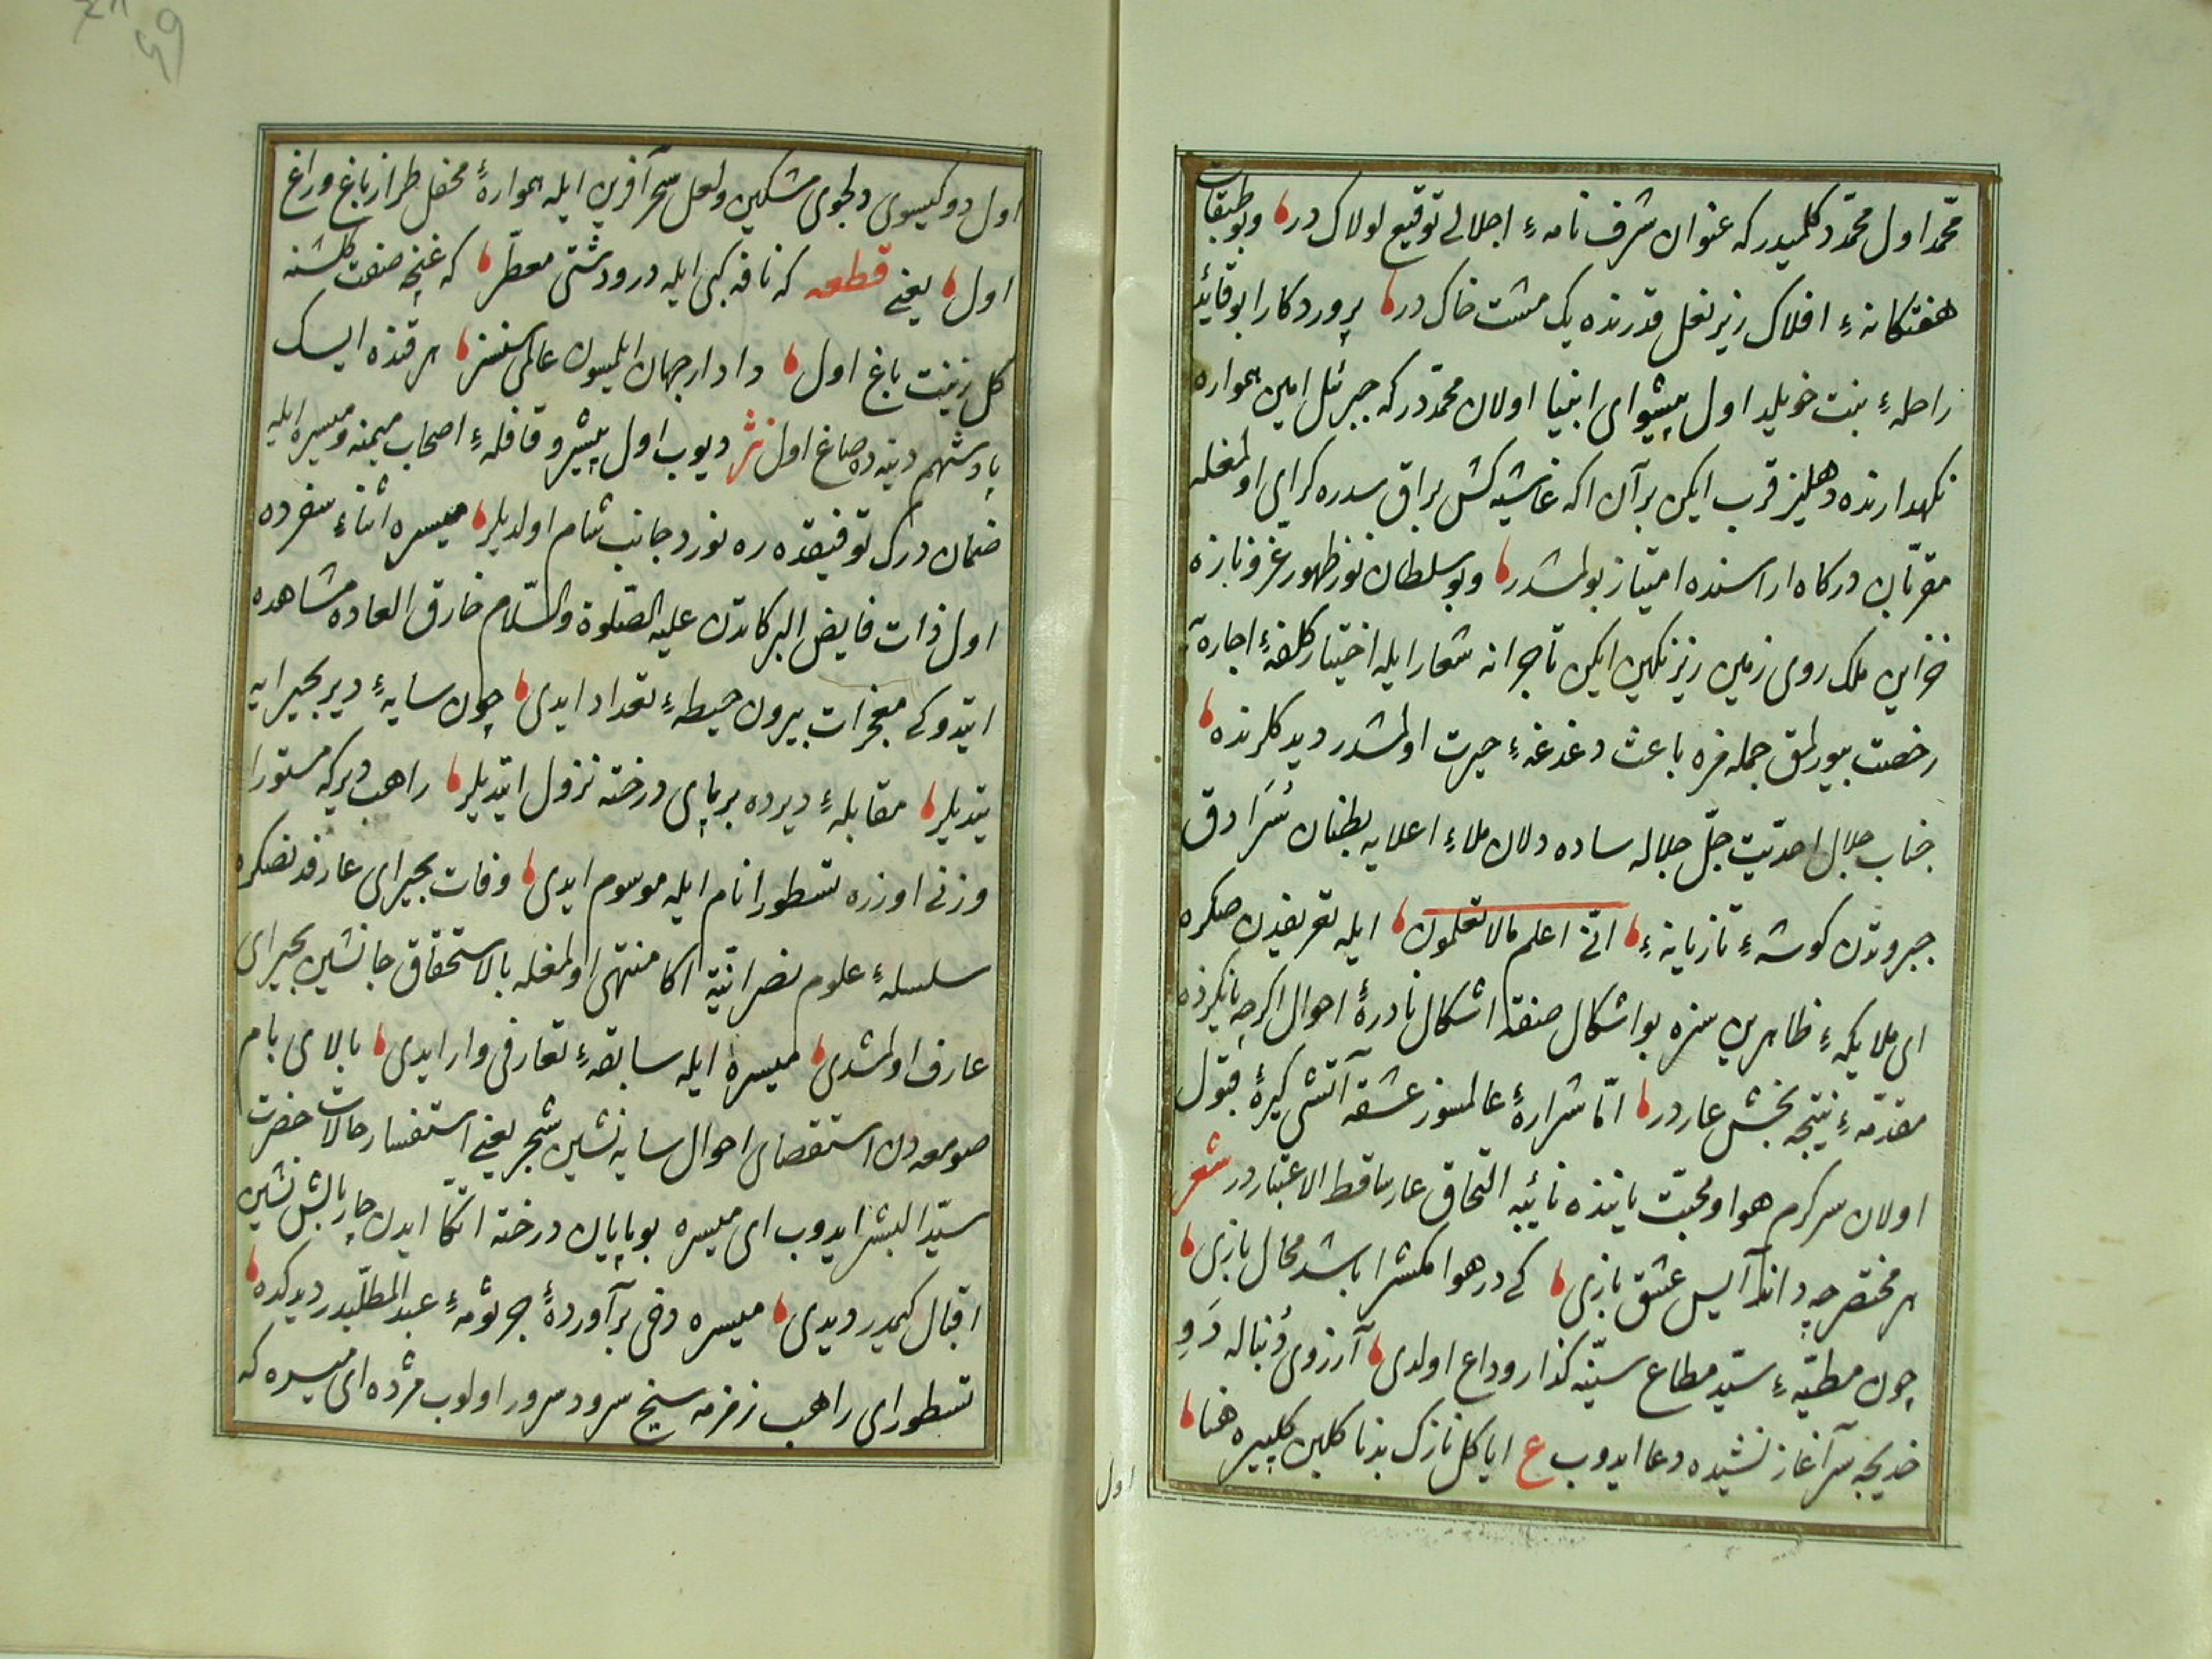 محمّد اول محمّد دكلميدر كه عنوان شرف نامهٔ اجلالى توقيع لولاك در، وبو طبقات
هفتكانهٔ افلاك زير نعل قدرنده يك مشت خاك در، پروردكارا بو قائد
راحلهٔ بنت خويلد اول پيشواى انبيا اولان محمّددر كه جبرئل امين همواره
نكهدارنده دهليز قرب ايكن بر آن اكه غاشيه كش براق سدره كراى اولمغله
مقرّبان دركاه اراسنده امتياز بولمشدر، وبو سلطان نوز ظهور عز ونازه
خزاين ملك روى زمين زير نكين ايكن تاجرانه شعار ايله اختيار كلفهٔ اجاره يه
رخصت بيورلمق جمله مزه باعث دغدغهٔ حيرت اولمشدر ديدكلرنده،
جناب جلال احديت جلّ جلاله ساده دلان ملاء اعلايه بطنان سُرَادق
جبروتدن كوشهٔ تازيانهٔ، انّى اعلم مالا تعلمون، ايله تعريفدن صكره
اى ملايكهٔ ظاهربين سزه بو اشكال صنفه اشكال نادرهٔ احوال اكرچه نايكرده
مقدّمهٔ نتيجه بخش عاردر، امّا شرارهٔ عالمسوز عشقه آتش كيرهٔ قبول
اولان سركرم هوا ومحبّت يانيذه نائيبه التحاق عار ساقط الاعتباردر شعر
هر مختصر چه داند آيين عشق بازى، كى در هوا مكس را باشد مجال بازى،
چون مطيّهٔ سيّد مطاع سيّنه كذار وداع اولدى، آرزوى دُنباله دَوِ
خديجه سر آغاز نشيده دعا ايدوب ع ايا كل نازك بدنا كلبن كلپيره هنا،
اول
اول دو كيسوى دلجوى مشكين ولعل سحر آفرين ايله همواره محفل طراز باغ وراغ
اول، يعنى قطعه كه نافه كبى ايله در ودشتى معطّر، كه غنچه صفت كلشنه
كل زينت باغ اول، دادار جهان ايلميسون عالمى سنسز، هر قنده ايسك
پادشهم دينه ده صاغ اول نثر ديوب اول پيشرو قافلهٔ اصحاب ميمنه وميسره ايله
ضمان درك توفيقده ره نورد جانب شام اولديلر، ميسره اثناء سفرده
اول ذات فايض البركاتدن عليه الصّلوة والسّلام خارق العاده مشاهده
ايتدوكى معجزات بيرون حيطهٔ تعداد ايدى، چون سايهٔ دير بحيرايه
يتديلر، مقابلهٔ ديرده بر پاى درخته نزول ايتديلر، راهب دير كه مستورا
وزنى اوزره نسطورا نام ايله موسوم ايدى، وفات بحيراى عارفدنصكره
سلسلهٔ علوم نصرانيّه اكا منتهى اولمغله بالاستحقاق جانشين بحيراى
عارف اولمشدى، ميسره ايله سابقهٔ تعارفى وار ايدى، بالاى بام
صومعه دن استقصاى احوال سايه نشين شجر يعنى استفسار حالات حضرت
سيّد البشر ايدوب اى ميسره بو پايان درخته اتّكا ايدن چار بالش نشين
اقبال كيمدر ديدى، ميسره دخى بر آوردهٔ جرثومهٔ عبد المطّلبدر ديدكده،
نسطوراى راهب زمزمه سنج سرود سرور اولوب مژده اى ميسره كه